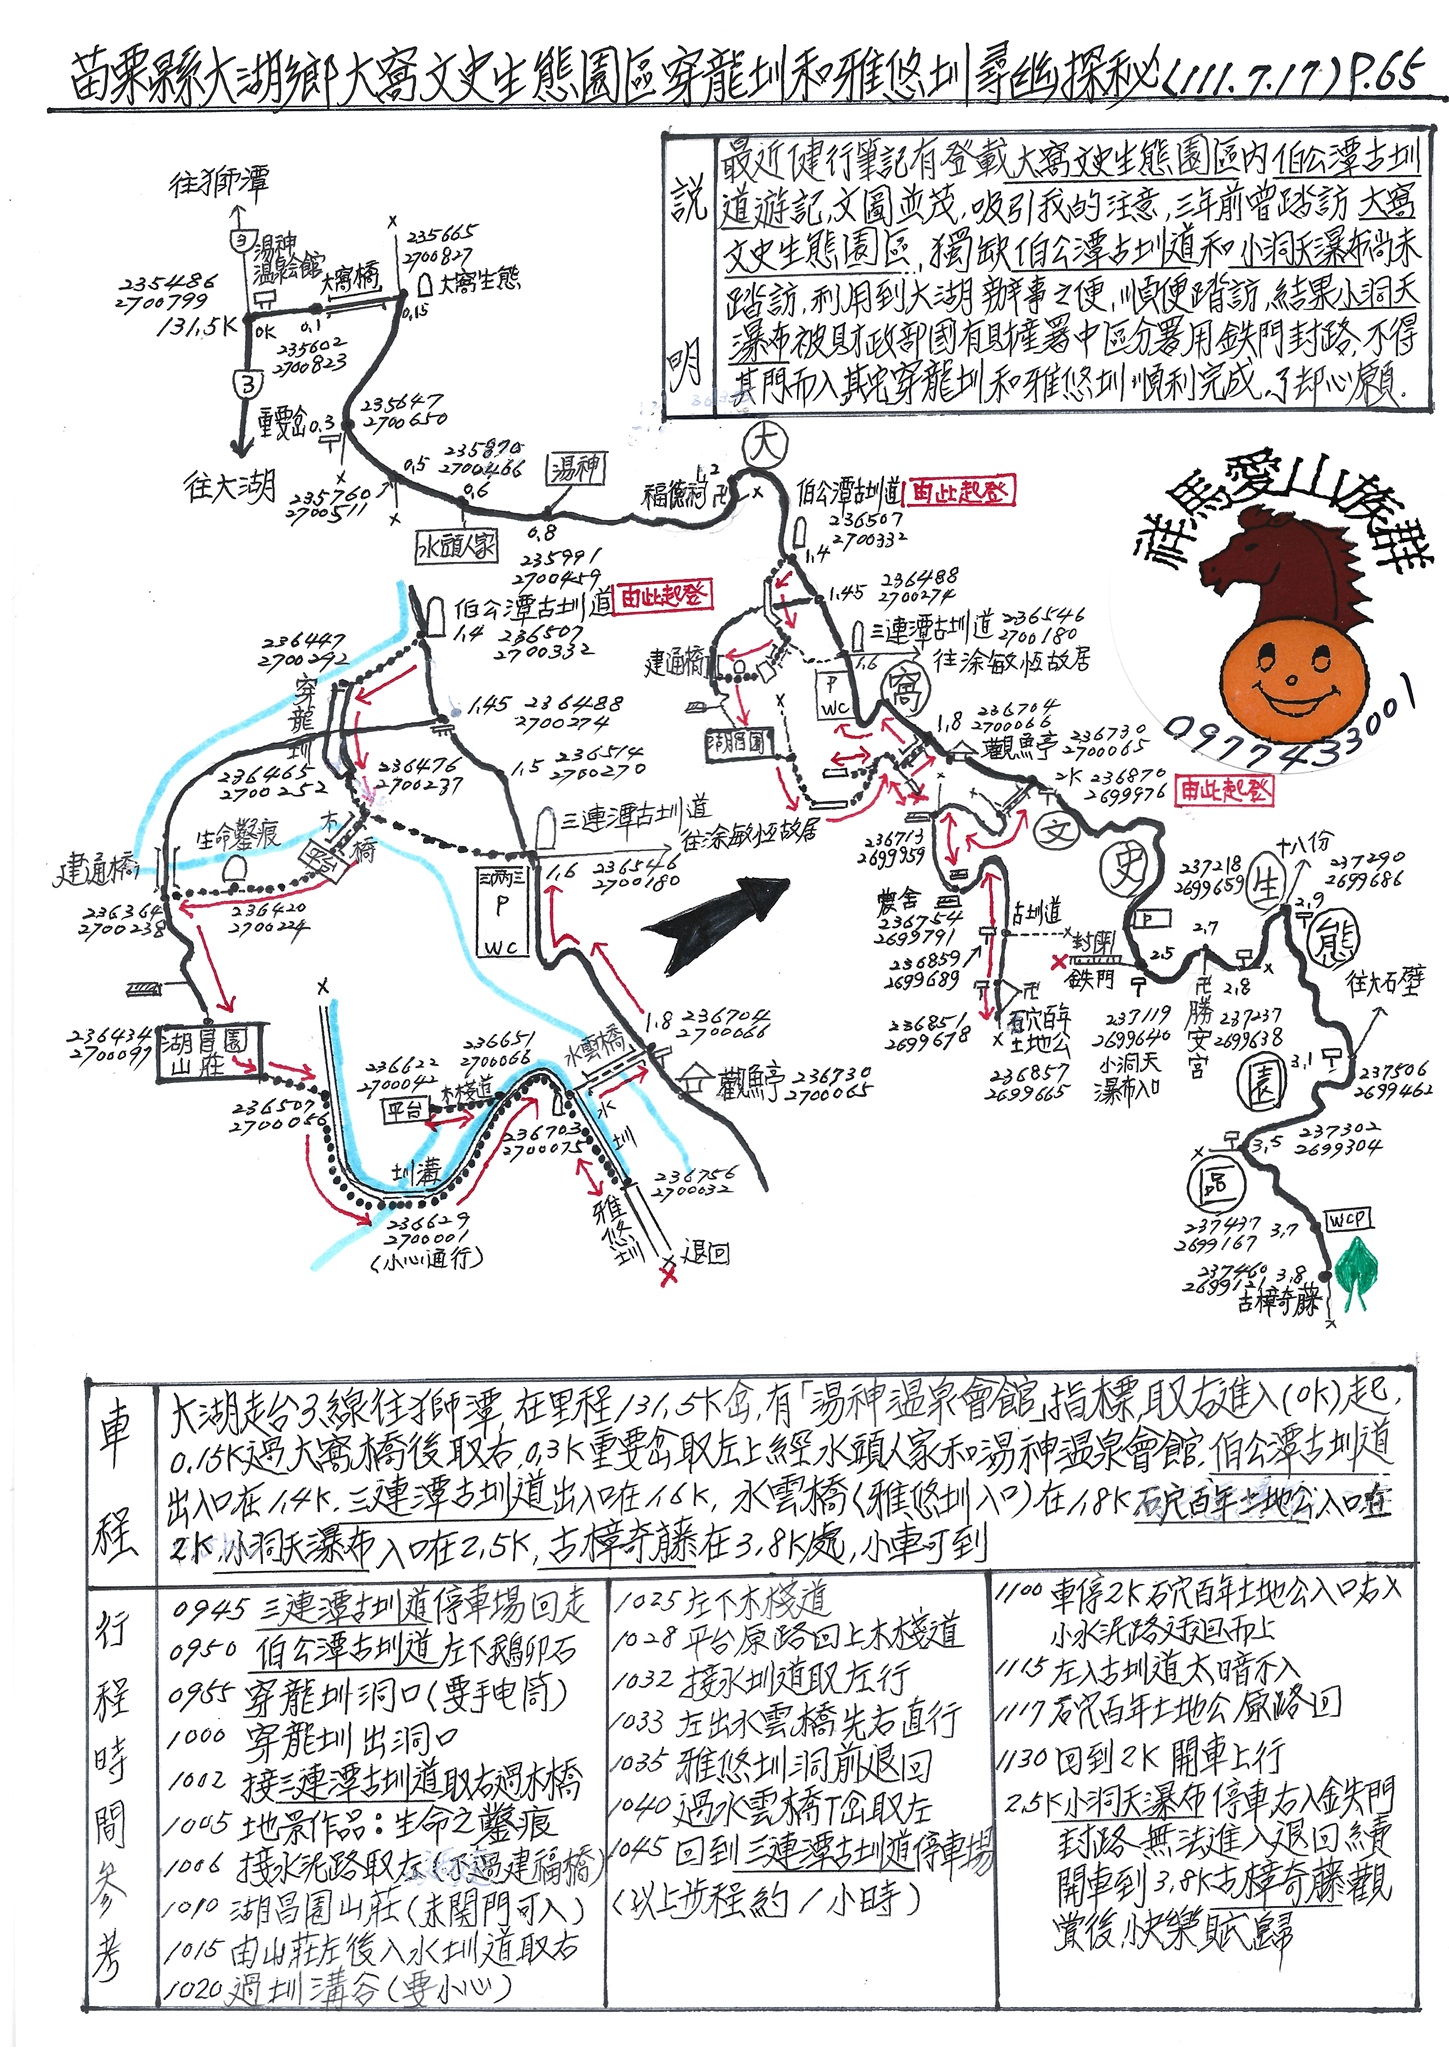 苗栗縣大湖鄉大窩文史生態園區穿龍圳和雅悠圳尋幽探秘(111.7.17)P.65
說明
最近健行筆記有登載大窩文史生態園區內伯公潭古圳
道遊記,文圖並茂,吸引我的注意,三年前曾踏訪大窩
文史生態園區,獨缺伯公潭古圳道和小洞天瀑布尚未
踏訪,利用到大湖辦事之便,順便踏訪,結果小洞天
瀑布被財政部國有財產署中區分署用鉄門封路,不得
其門而入其它穿龍圳和雅悠圳順利完成,了却心願.
祥馬愛山族群
0977433001
往獅潭
3
湯神
溫泉会館
大窩橋
235665
2700827
大窩生態
235486
2700799
131.5K
0K
0.1
0.15
235602
2700823
3
重要岔0.3
235647
2700650
往大湖
0.5
235760
2700511
235870
2700466
0.6
水頭人家
湯神
0.8
235991
2700459
福德祠
1.2
卍
大
伯公潭古圳道
由此起登
236507
2700332
1.4
1.45
236488
2700274
三連潭古圳道
236546
2700180
1.6
往涂敏恆故居
建通橋
P
WC
窩
湖昌園
1.8
236704
2700066
觀魚亭
236730
2700065
2K
236870
2699976
由此起登
文
236713
2699959
農舍
236754
2699791
236859
2699689
古圳道
卍
石穴百年
土地公
236851
2699678
236857
2699665
史
P
封閉
鉄門
2.5
237119
2699640
小洞天
瀑布入口
2.7
卍
勝安宮
237218
2699659
生
十八份
237290
2699686
2.9
態
2.8
237237
2699638
往大石壁
3.1
237506
2699462
園
3.5
237302
2699304
區
237437
2699167
3.7
WCP
237460
2699121
3.8
古樟奇藤
伯公潭古圳道
由此起登
1.4
236507
2700332
236447
2700292
穿龍圳
1.45
236488
2700274
236465
2700252
236476
2700237
1.5
236514
2700270
生命鑿痕
木橋
平台
三連潭古圳道
往涂敏恆故居
1.6
236546
2700180
P
WC
建通橋
236364
2700238
236420
2700224
236434
2700097
湖昌園
山莊
236507
2700056
236622
2700042
平台
木棧道
236651
2700066
水雲橋
1.8
236704
2700066
觀魚亭
236730
2700065
圳溝
236703
2700075
水圳
236756
2700032
雅悠圳
退回
236629
2700001
(小心通行)
車程
大湖走台3線往獅潭,在里程131.5K岔,有「湯神溫泉會館」指標,取右進入(0K)起,
0.15K過大窩橋後取右,0.3K重要岔取左上經水頭人家和湯神溫泉會館.伯公潭古圳道
出入口在1.4K.三連潭古圳道出入口在1.6K,水雲橋(雅悠圳入口)在1.8K石穴百年土地公入口在
2K,小洞天瀑布入口在2.5K,古樟奇藤在3.8K處,小車可到
行程時間參考
0945 三連潭古圳道停車場回走
0950 伯公潭古圳道左下鵝卵石
0955 穿龍圳洞口(要手电筒)
1000 穿龍圳出洞口
1002 接三連潭古圳道取右過木橋
1005 地景作品:生命之鑿痕
1006 接水泥路取左(不過建福橋)
1010 湖昌園山莊(未關門可入)
1015 由山莊左後入水圳道取右
1020 過圳溝谷(要小心)
1025 左下木棧道
1028 平台原路回上木棧道
1032 接水圳道取左行
1033 左出水雲橋先右直行
1035 雅悠圳洞前退回
1040 過水雲橋T岔取左
1045 回到三連潭古圳道停車場
(以上步程約1小時)
1100 車停2K石穴百年土地公入口右入
小水泥路迂迴而上
1115 左入古圳道太暗不入
1117 石穴百年土地公原路回
1130 回到2K開車上行
2.5K小洞天瀑布停車右入鉄門
封路無法進入退回續
開車到3.8K古樟奇藤觀
賞後,快樂賦歸